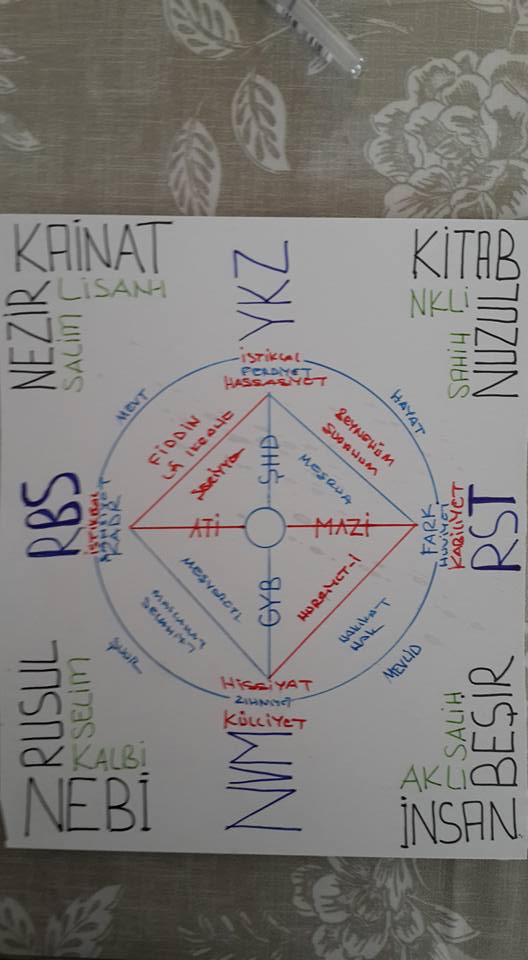 KAİNAT
LİSANI
NEZİR
SALİM
YKZ
KİTAB
NKLİ
NUZUL
SAHİH
İSTİKLAL
FERDİYET
HASSASİYET
MEVT
HAYAT
FİDDİN
LA İKRAHE
ŞER'İYYE
ŞHD
BEYNEHÜM
ŞURAHUM
MEŞRUA
RBS
İSTİKBAL
KADR
ATİ
MAZİ
FARK
HUVİYET
KABİLİYET
RST
MEŞVERETİ
GYB
HÜRRİYET-İ
MASLAHAT
HAKİKAT
HAK
ŞUUR
MEVLİD
HİSSİYAT
ZİHNİYET
KÜLLİYET
NVM
RUSUL
SELİM
KALBİ
NEBİ
BEŞİR
SALİH
AKLI
İNSAN